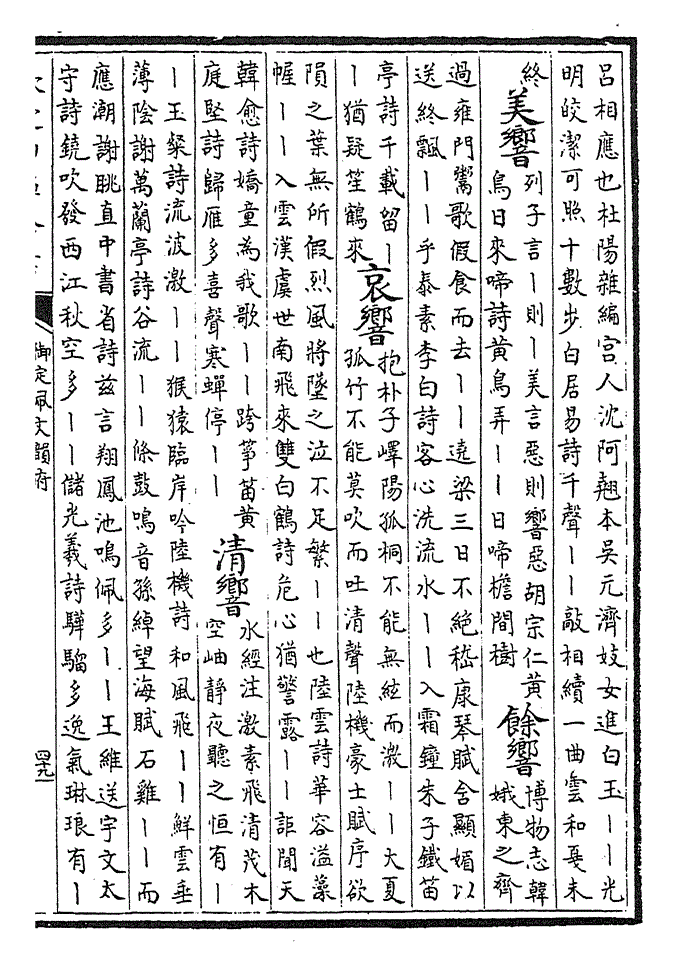 呂相應也杜陽雜編宮人沈阿翹本吳元濟妓女進白玉丨丨光
明皎潔可照十數步白居易詩千聲丨丨敲相續一曲雲和戛未
終
美響
列子言丨則丨美言惡則響惡胡宗仁黃
鳥日來啼詩黃鳥弄丨丨日啼檐間樹
餘響
博物志韓
娥東之齊
過雍門鬻歌假食而去丨丨遶梁三日不絕嵇康琴賦含顯媚以
送終飄丨丨乎泰素李白詩客心洗流水丨丨入霜鐘朱子鐵笛
亭詩千載留丨
丨猶疑笙鶴來
哀響
抱朴子嶧陽孤桐不能無絃而激丨丨大夏
孤竹不能莫吹而吐清聲陸機豪士賦序欲
隕之葉無所假烈風將墜之泣不足繁丨丨也陸雲詩華容溢藻
幄丨丨入雲漢虞世南飛來雙白鶴詩危心猶警露丨丨詎聞天
韓愈詩嬌童為我歌丨丨跨箏笛黃
庭堅詩歸雁多喜聲寒蟬停丨丨
清響
水經注激素飛清茂木
空岫靜夜聽之恒有丨
丨玉粲詩流波激丨丨猴猿臨岸吟陸機詩和風飛丨丨鮮雲垂
薄陰謝萬蘭亭詩谷流丨丨條鼓鳴音孫綽望海賦石雞丨丨而
應潮謝眺直中書省詩茲言翔鳳池鳴佩多丨丨王維送宇文太
守詩鐃吹發西江秋空多丨丨儲光羲詩驊騮多逸氣琳琅有丨
御定佩文韻府
四十九